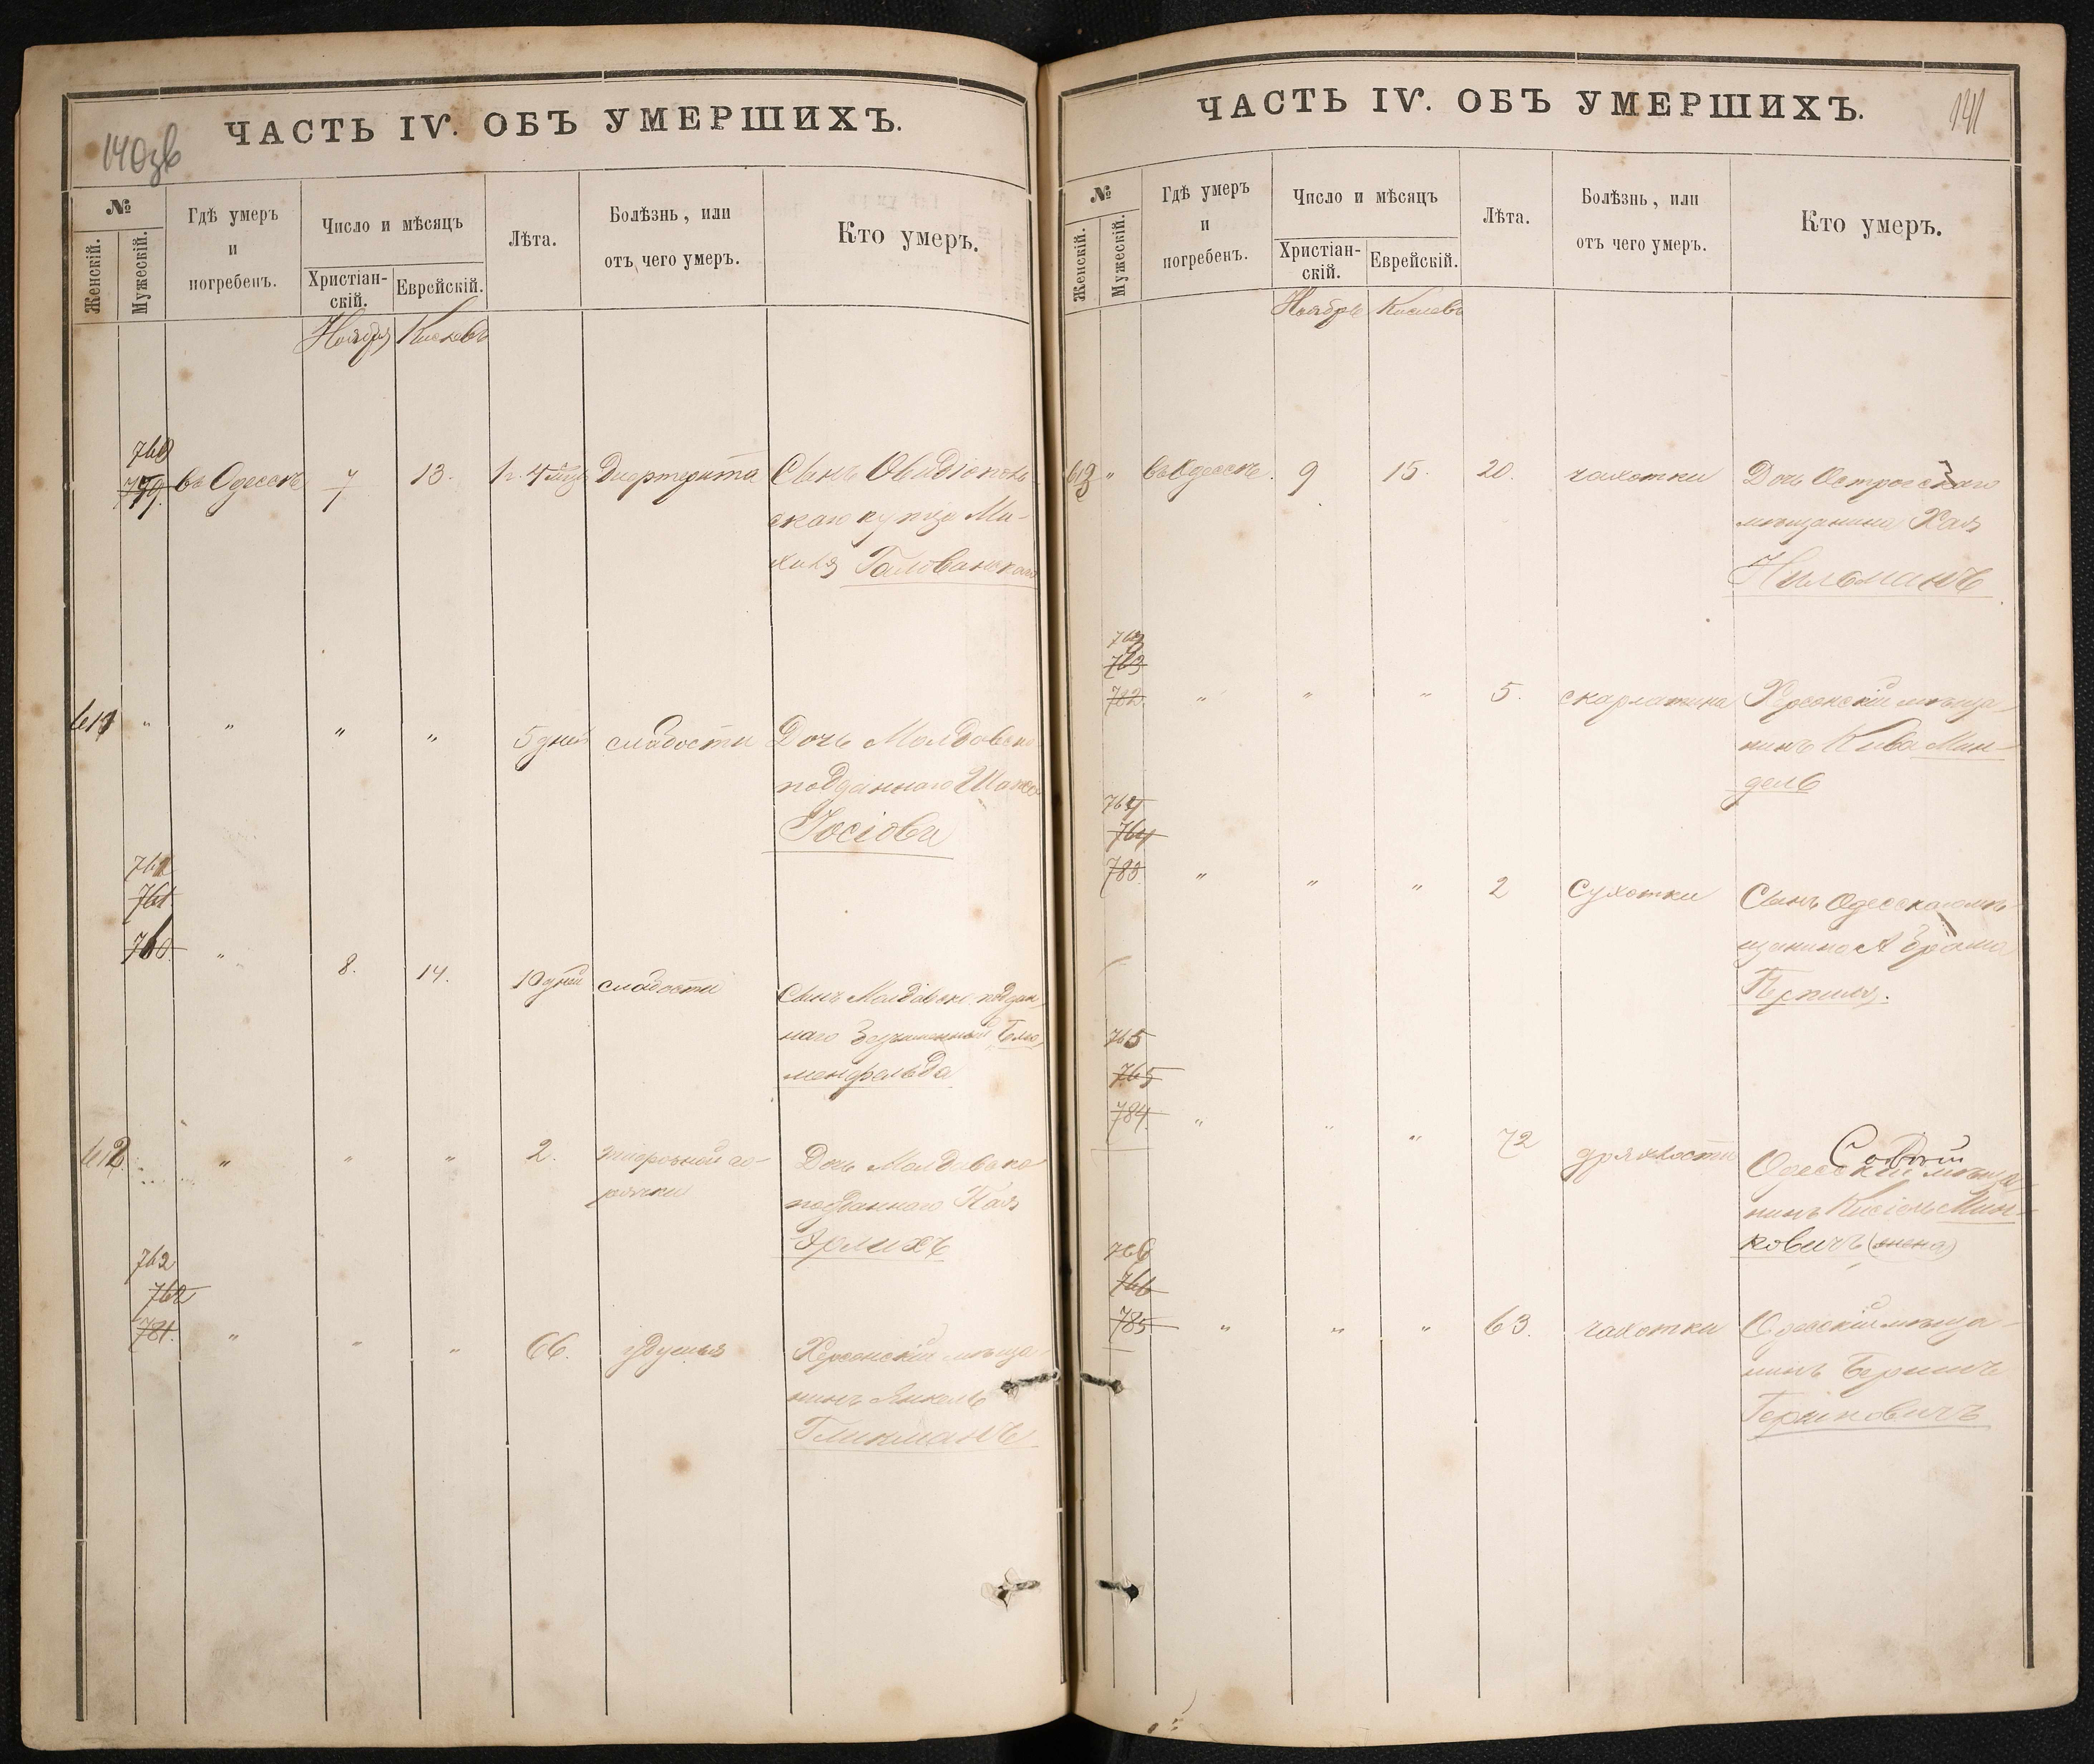 140зв
ЧАСТЬ IV. ОБЪ УМЕРШИХЪ.
№
Женскій.
Мужескій.
Гдѣ умеръ
и
погребенъ.
Число и мѣсяцъ
Христіан-
скій.
Еврейскій.
Лѣта.
Болѣзнь, или
отъ чего умеръ.
Кто умеръ.
Ноябрь Кислевъ
760
779. въ Одессѣ 7 13. 1 г. 4 мѣс Дифтерита Сынъ Овидіополь-
скаго купца Ми-
хиля Головaньскаго
611 " " " " 5 дней слабости Дочь Молдавско
подданнаго
Іосіови
762
761
760. " 8. 14. 10 дней слабости Сынъ Молдавск. поддан
наго Блю
менфельда
612 " " " 2. го-
рячки Дочь Молдавско
подданнаго
Эрлихъ
762
762
781. " " " 66. удушья Херсонскій мѣща-
нинъ Янкель
Гликманъ
ЧАСТЬ IV. ОБЪ УМЕРШИХЪ.
141
№
Женскій.
Мужескій.
Гдѣ умеръ
и
погребенъ.
Число и мѣсяцъ
Христіан-
скій.
Еврейскій.
Лѣта.
Болѣзнь, или
отъ чего умеръ.
Кто умеръ.
Ноябрь Кислевъ
613 " въ Одессѣ. 9 15. 20. чахотки Дочь Острогскаго
мѣщанина Хая
Нильманъ
763
763
782. " " " 5. скарлатина Херсонскій мѣща-
нинъ Кива Мин-
дель
764
764
783. " " " 2 Сухотки Сынъ Одесскаго мѣ-
щанина Абрама
765
765
784. " " " 72 дряхлости Одесскій мѣща
нинъ Кисіель Мин-
ковичъ
766
766
785 " " " 63. чахотка Одесскій мѣща-
нинъ Беришъ
Гершковичъ